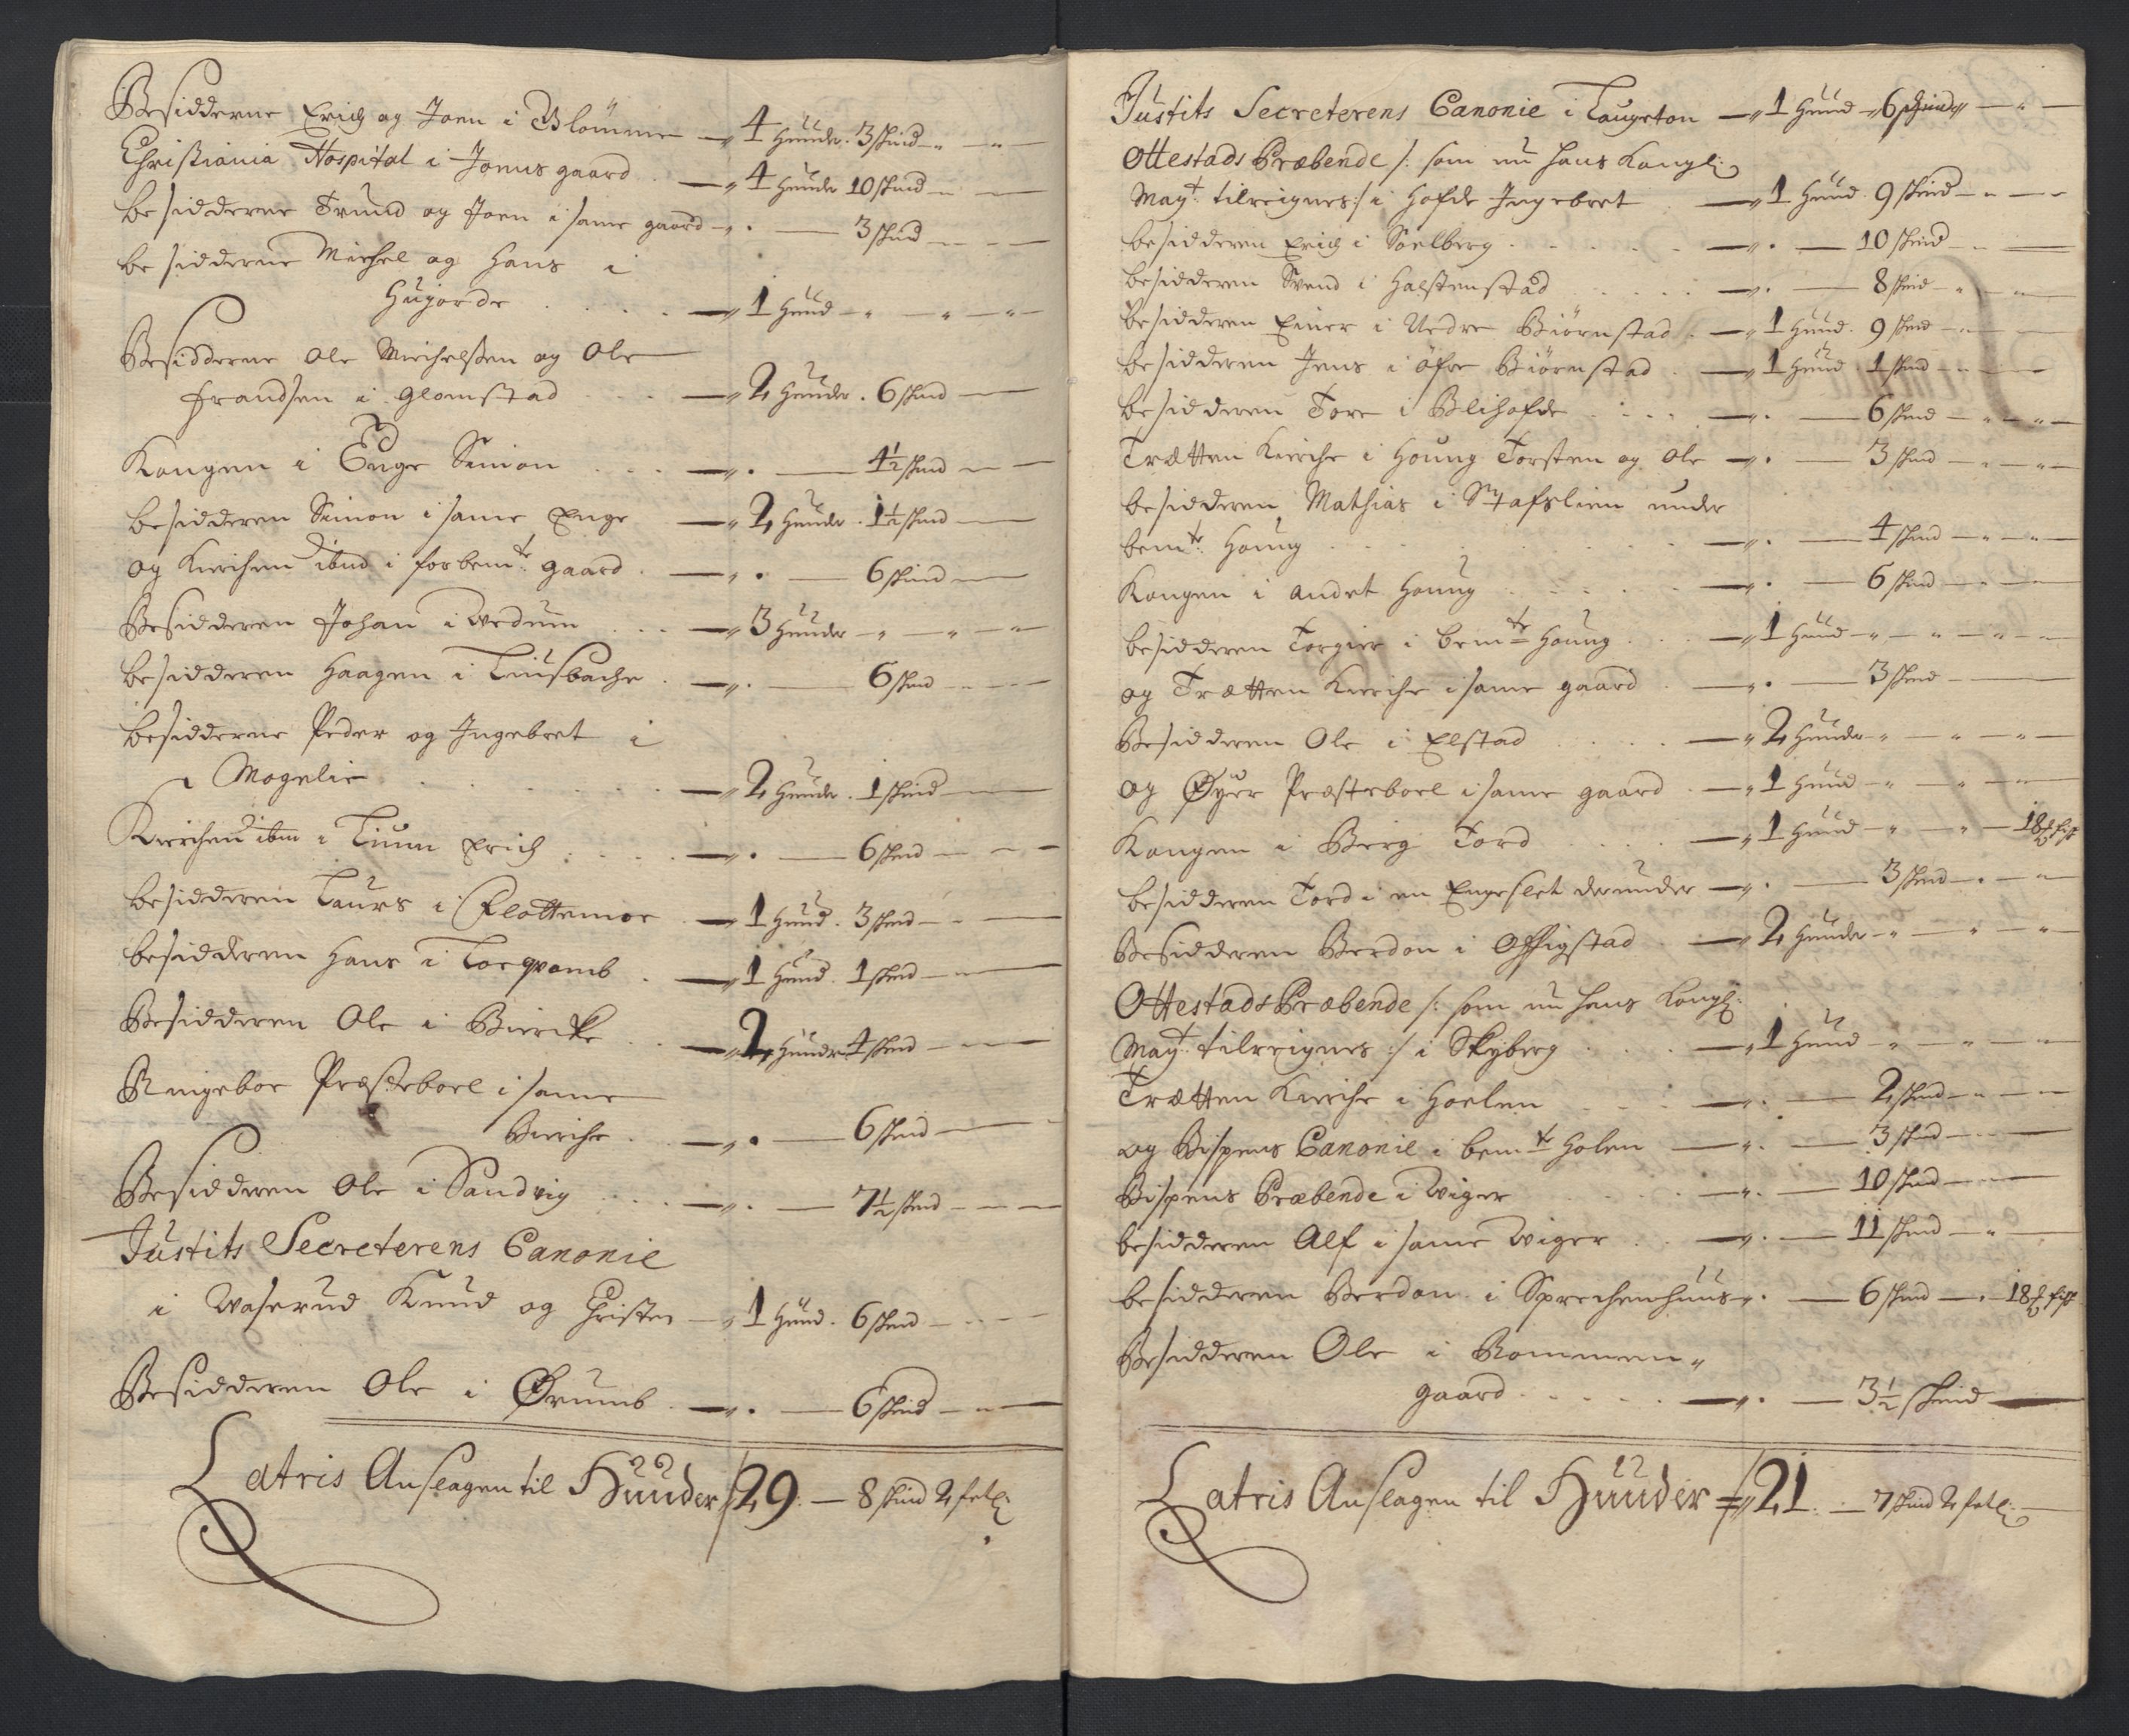 Besidderne Erich og Joen i Blomme — 4 Huuder. 3 skind
Christiania Hospital i Jonusgaard — 4 Huuder 10 skind
besidderne Trund og Joen i same gaard — 3 skind
besidderne Michel og Hans i
Hujorde — 1 Huud
Besidderne Ole Michelsen og Ole
Frandsen i Glomstad — 2 Huuder. 6 skind
Kongen i Enge Simon — 4½ skind
besidderen Simon i same Enge — 2 Huuder. 1½ skind
og Kirchen ibnd i forbemte: gaard — 6 skind
Besidderen Johan i Vedum — 3 Huuder
besidderen Haagen i Tiusbache — 6 skind
besidderne Peder og Ingebret i
Mogelie — 2 Huuder. 1 skind
Kirchen ibm i Tiun Erich — 6 skind
besidderen Laurs i Flottemoe — 1 Huud. 3 skind
besidderen Hans i Torgvamb — 1 Huud. 1 skind
Besidderen Ole i Biercke — 2 Huuder 4 skind
Ringeboe Præsteboel i same
Bierche — 6 skind
Besidderen Ole i Sandvig — 7½ skind
Justits Secreterens Canonie
i Vaserud Knud og Christen — 1 Huud. 6 skind
Besidderen Ole i Ørumb — 6 skind
Latris Anslagen til Huuder 29 — 8 skind 2 fell:
Justits Secreterens Canonie i Taugrton — 1 Huud 6 skind
Ottestads Præbende /: som nu hans Kongl:
Mayt: tilreignes :/ i Hofde Ingebret — 1 Huud. 9 skind
besidderen Erich i Soelberg — 10 skind
besidderen Svend i Halstenstad — 8 skind
besidderen Einer i Nedre Biørnstad — 1 Huud. 9 skind
besidderen Jens i öfre Biörnstad — 1 Huud. 1 skind
besidderen Tore i Blihofde — 6 skind
Trætten Kirche i Houng Torsten og Ole — 3 skind
besidderen Mathias i Stafslien under
bemte: Houng — 4 skind
Kongen i andet Houng — 6 skind
besidderen Torgier i bemte Houng — 1 Huud
og Trætten Kirche i same gaard — 3 skind
Besidderen Ole i Elstad — 2 Huuder
og Øyer Præsteboel i same gaard — 1 Huud
Kongen i Berg Tord — 1 Huud — 18 ℔ fisk
besidderen Tord i en Engeslet derunder — 3 skind
Besidderen Berdon i Offigstad — 2 Huuder
Ottestads Præbende /: som nu hans Kongl:
Mayt: tilreignes :/ i Skyberg — 1 Huud
Trætten Kirche i Hoelen — 2 skind
og Bispens Canonie i bemte Holen — 3 skind
Bispens Præbende i Viger — 10 skind
besidderen Alf i same Viger — 11 skind
besidderen Berdon i Sprechenhuus — 6 skind — 18 ℔ fisk
Besidderen Ole i Rommen„
gaard — 3½ skind
Latris Anslagen til Huuder 21. — 7 skind 2 fell: